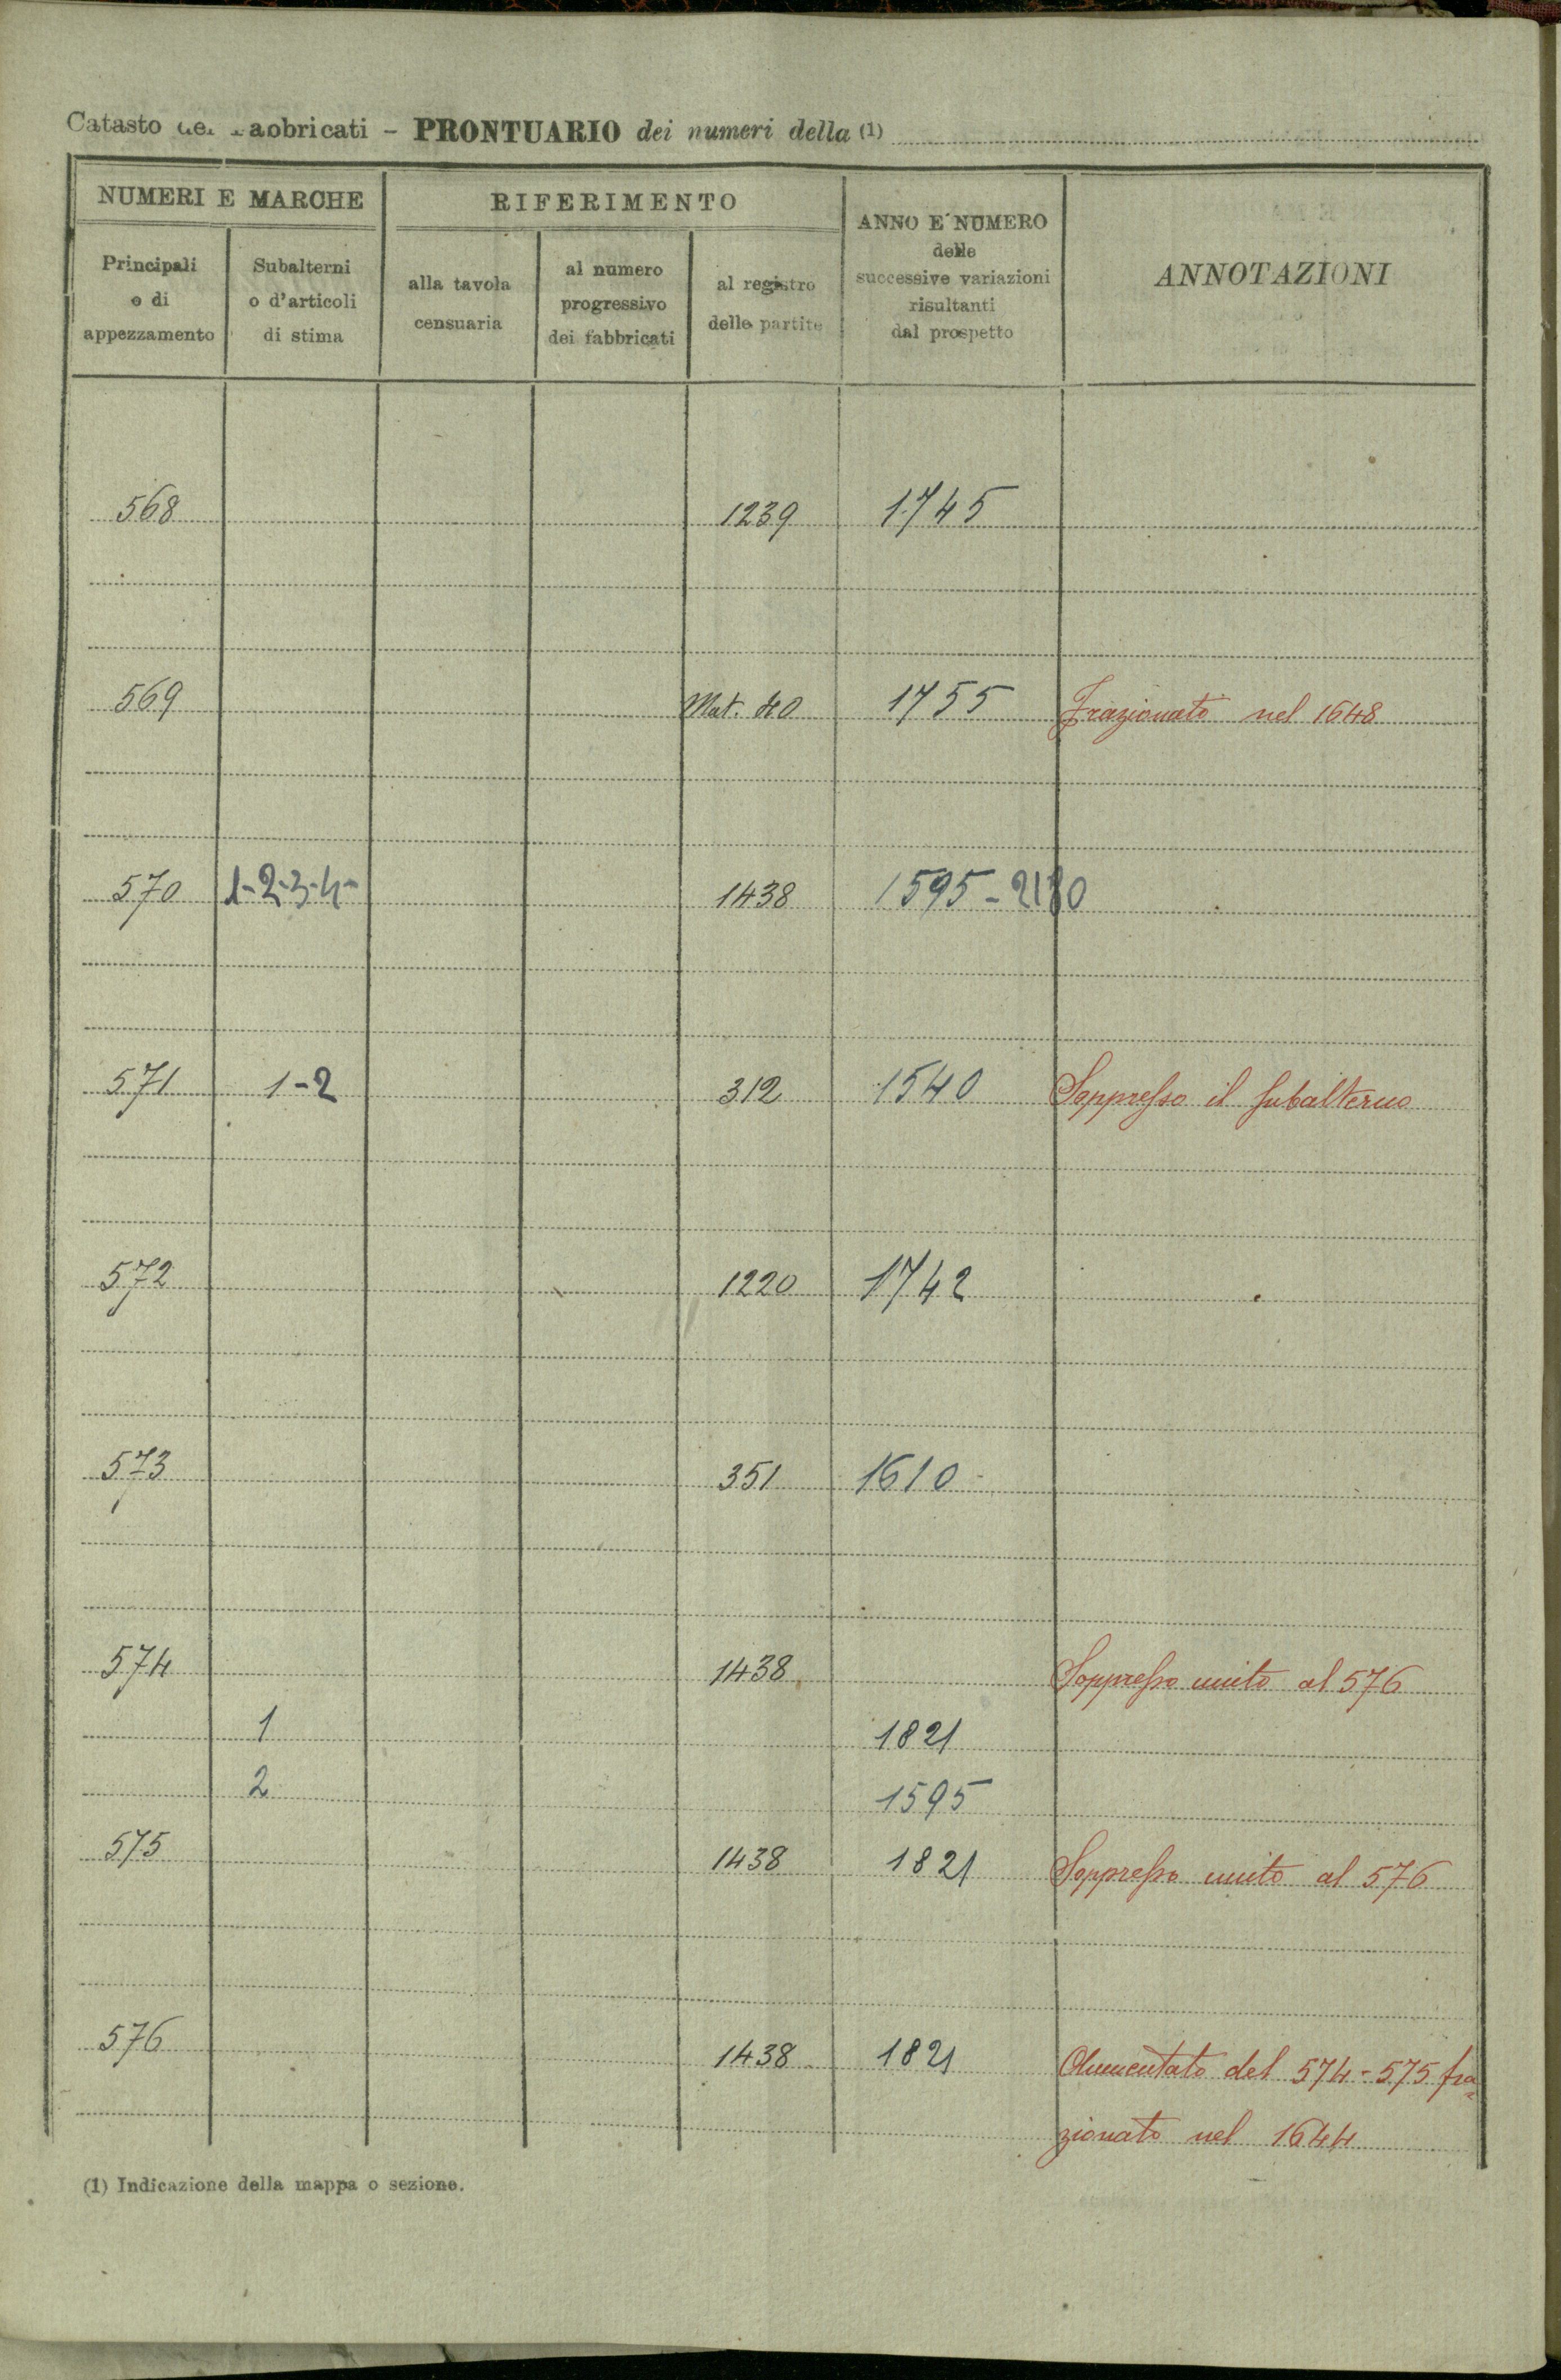 Catasto dei Fabbricati - PRONTUARIO dei numeri della (1)
NUMERI E MARCHE
RIFERIMENTO
ANNO E NUMERO
delle
successive variazioni
risultanti
dal prospetto
ANNOTAZIONI
Principali
e di
appezzamento
Subalterni
o d'articoli
di stima
alla tavola
censuaria
al numero
progressivo
dei fabbricati
al registro
delle partite
568 1239 1745
569 Mat. 40 1755 Frazionato nel 1648
570 1-2-3-4- 1438 1595-2180
571 1-2 312 1540 Soppresso il subalterno
572 1220 1742
573 351 1610
574 1438 Soppresso unito al 576
1 1821
2 1595
575 1438 1821 Soppresso unito al 576
576 1438 1821 Aumentato del 574-575 fra=
zionato nel 1644
(1) Indicazione della mappa o sezione.